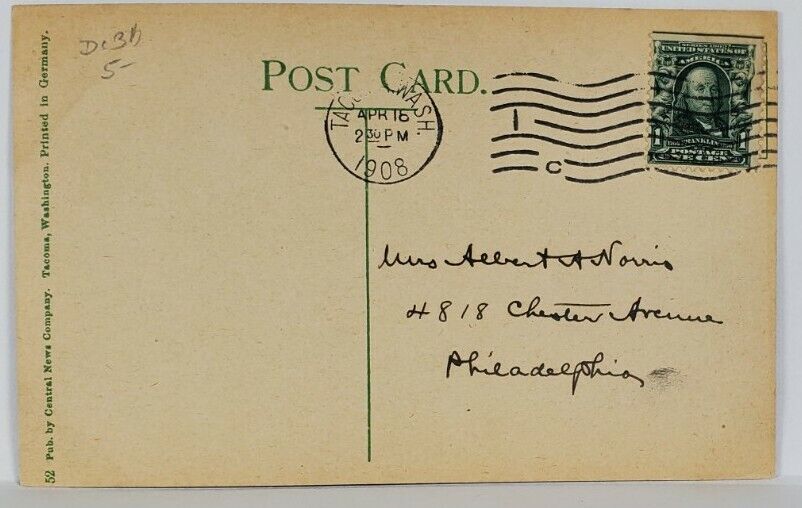 5-
POST CARD.
TACOMA, WASH.
APR 16
2 30 PM
1908
1
C
SERIES 1902
UNITED STATES OF
AMERICA
FRANKLIN
POSTAGE
1
Mrs Albert A Norris
4818 Chester Avenue
Philadelphia
52 Pub. by Central News Company. Tacoma, Washington. Printed in Germany.